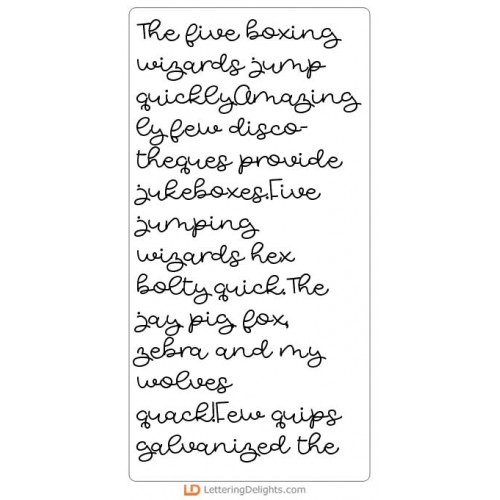 The five boxing
wizards jump
quickly.Amazing
ly few disco-
theques provide
jukeboxes.Five
jumping
wizards hex
bolty quick.The
jay, pig, fox,
zebra and my
wolves
quack!Few quips
galvanized the
LD LetteringDelights.com